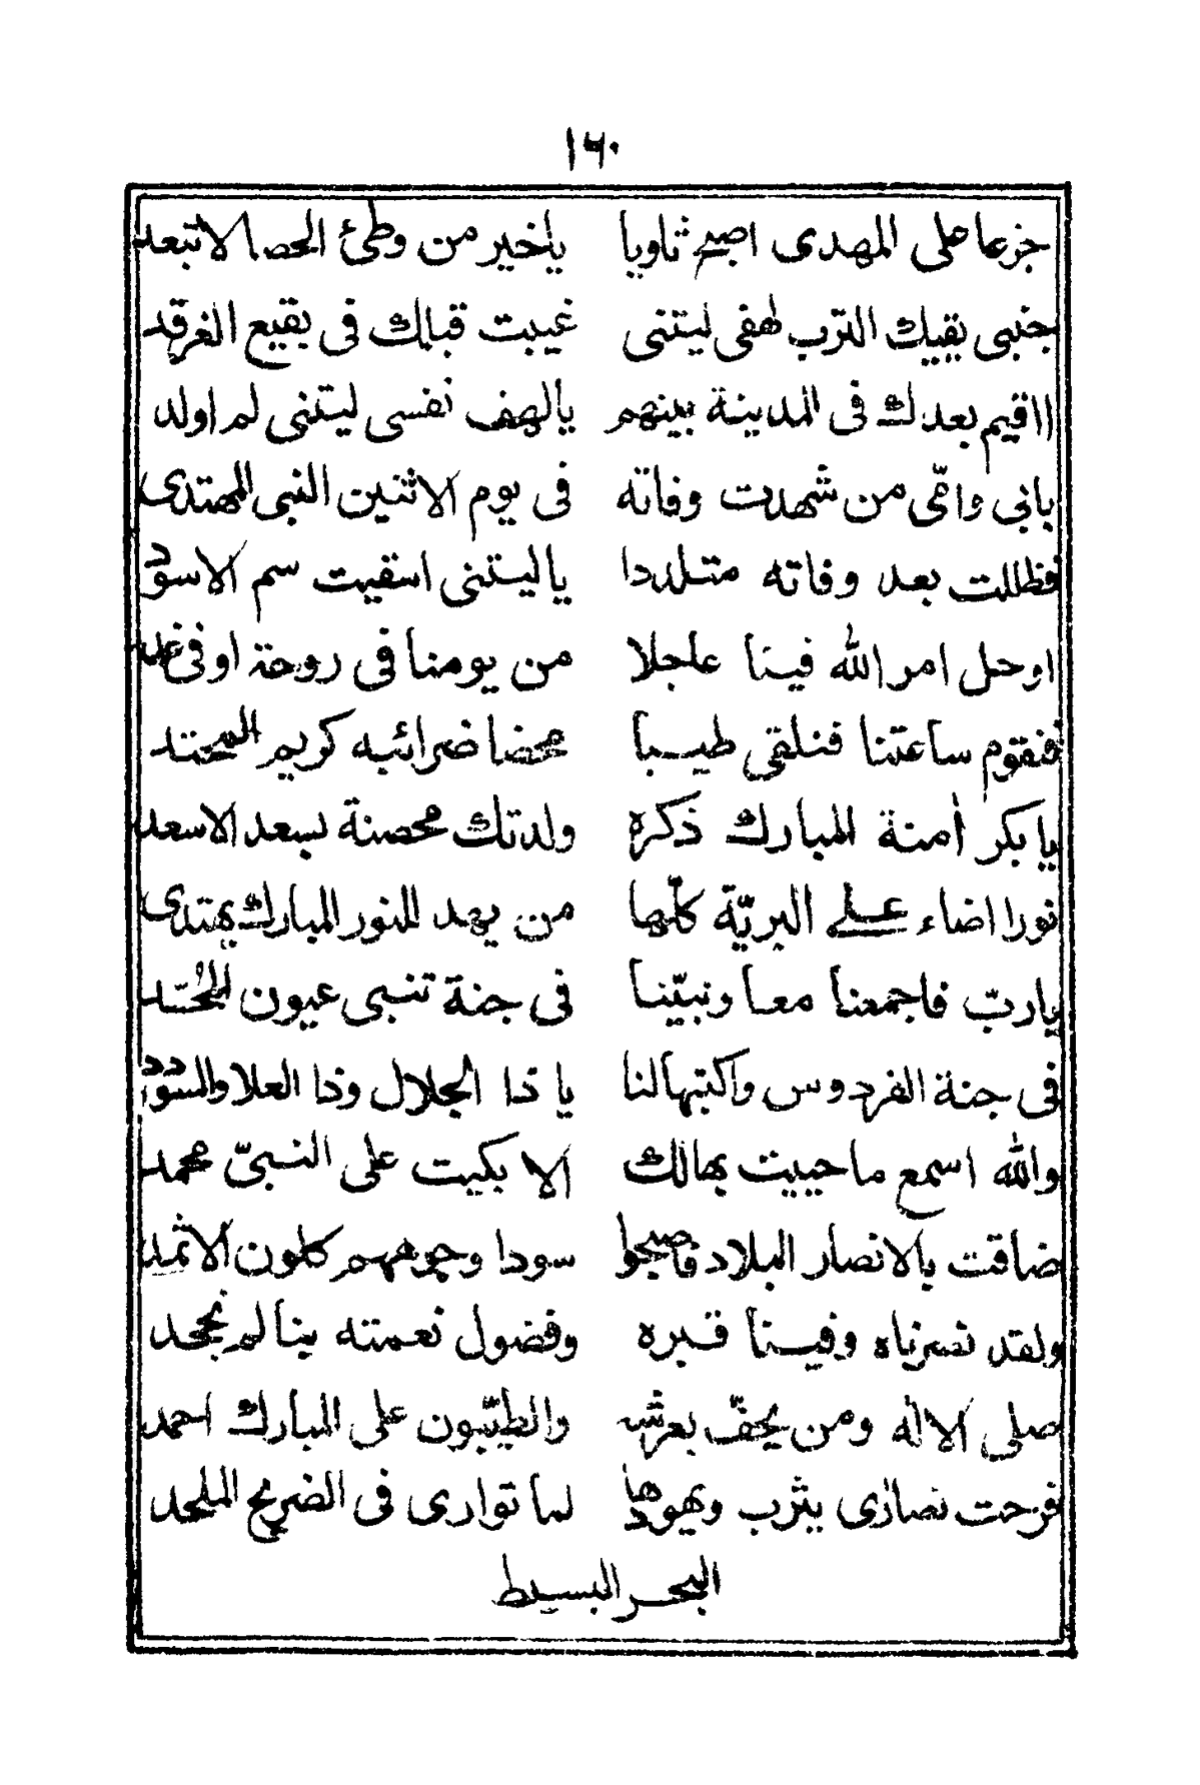 ١٦٠
جزعا على المهدى اصبح ثاويا ياخير من وطئ الحصا لا تبعد
جنبى يقيك الترب لهفى ليتنى غيبت قبلك فى بقيع الغرقد
ااقيم بعدك فى المدينة بينهم يالهف نفسى ليتنى لم اولد
بابى وامّى من شهدت وفاته فى يوم الاثنين النبى المهتدى
فظللت بعد وفاته متلددا ياليتنى اسقيت سم الاسود
اوحل امر الله فينا عاجلا من يومنا فى روحة اوفى غد
فنقوم ساعتنا فنلقى طيبا محضا ضرائبه كريم المحتد
يا بكر أمنة المبارك ذكره ولدتك محصنة بسعد الاسعد
نورا اضاء على البريّة كلّها من يهد للنور المبارك يهتدى
ياربّ فاجمعنا معا ونبيّنا فى جنة تنبى عيون الحُسّد
فى جنة الفردوس واكتبها لنا يا ذا الجلال وذا العلا والسودد
والله اسمع ما حييت بهالك الا بكيت على النبىّ محمد
ضاقت بالانصار البلاد فاصبحوا سودا وجوههم كلون الاثمد
ولقد نصرناه وفينا قبره وفضول نعمته بنا لم نجحد
صلى الاله ومن يحفّ بعرشه والطيّبون على المبارك احمد
فرحت نصارى يثرب ويهودها لما توارى فى الضريح الملحد
البحر البسيط